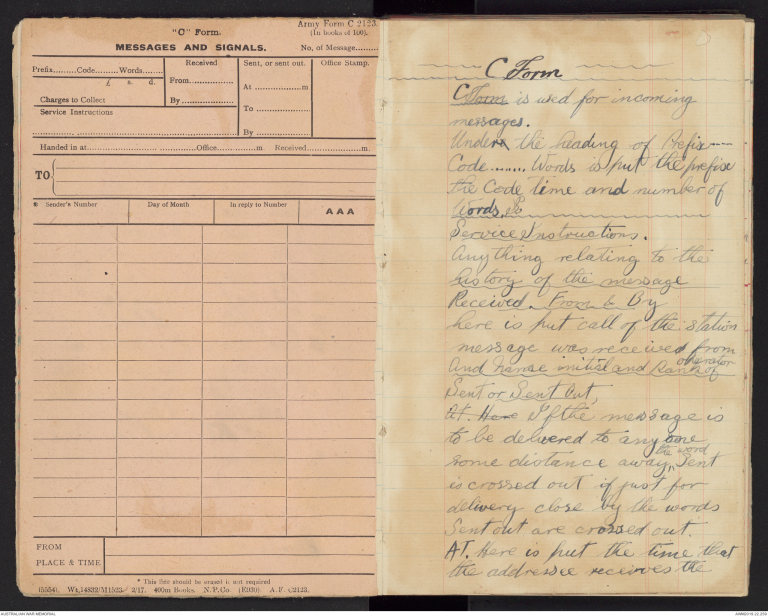 "C" Form.
Army Form C 2123.
(In books of 100).
MESSAGES AND SIGNALS.
No. of Message........
Prefix.........Code.........Words.......
£ s. d.
Charges to Collect
Service Instructions
Received
From............
By...............
Sent, or sent out.
At ..................m
To ..................
By..................
Office Stamp.
Handed in at..............................Office............m Received....................m.
TO
* Sender's Number
Day of Month
In reply to Number
AAA
FROM
PLACE & TIME
* This line should be erased if not required
(5554). Wt.14832/M1523. 2/17. 400m Books. N.P.Co. (E930) A.F. C2123.
AUSTRALIAN WAR MEMORIAL
C Form
C Form is used for incoming
messages.
Under the heading of Prefix----
Code....... Words is put the prefix
the Code Time and number of
Words.
Service Instructions.
Any thing relating to the
history of the message
Received. From & By
here is put call of the station
message was received from
And Name initial and Rank of operator
Sent or Sent Out,
At. Here If the message is
to be delivered to any one
some distance away, the word Sent
is crossed out if just for
delivery close by the words
Sent out are crossed out.
AT. Here is put the time that
the addressee receives the
AWM2016.22.259